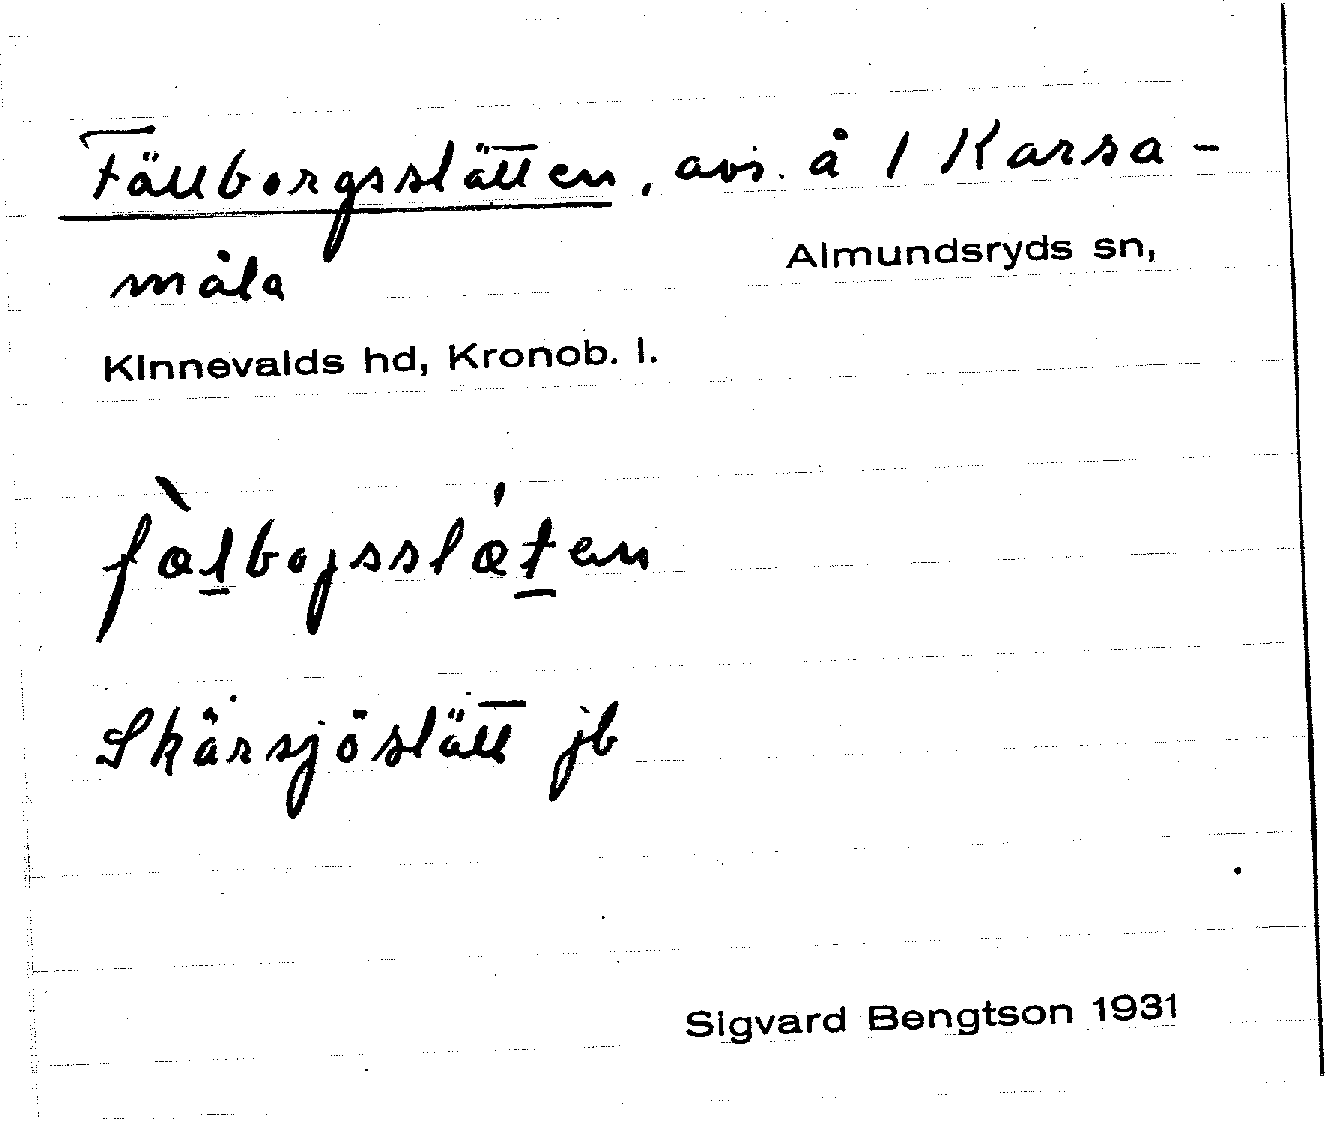 Fällborgsslätten, avs. å 1 Karsa-
måla Almundsryds sn,
Kinnevalds hd, Kronob. l.
fàlbojsslǽten
Skärsjöslätt jb
Sigvard Bengtson 1931